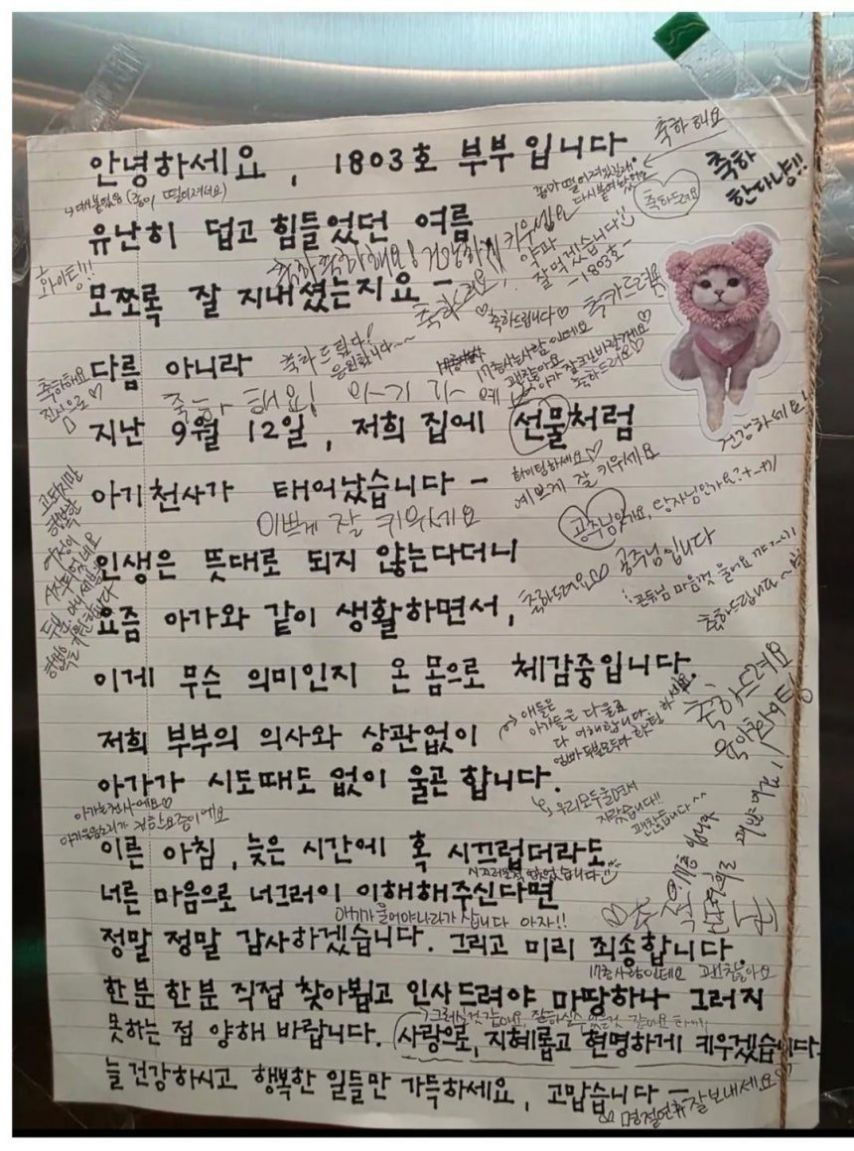 안녕하세요, 1803호 부부입니다
축하해요
축하
한다냥!!
축하드려요
유난히 덥고 힘들었던 여름
화이팅!!!
잘먹겠습니다
-1803호-
모쪼록 잘 지내셨는지요-
축하드려요
축하드립니다♡
다름 아니라
축하드립니다!
응원합니다~~
축하해요
진심으로♡
축하드려요
지난 9월 12일, 저희 집에 선물처럼
건강하세요!
화이팅하세요♡
예쁘게 잘 키우세요
아기천사가 태어났습니다-
이쁘게 잘 키우세요
공주님인가요, 왕자님인가요?
인생은 뜻대로 되지 않는다더니
공주님입니다
요즘 아가와 같이 생활하면서,
축하드려요♡♡
축하드립니다~
이게 무슨 의미인지 온 몸으로 체감중입니다.
축하드려요
저희 부부의 의사와 상관없이
애들은
아가가 시도때도 없이 울곤 합니다.
아가는 천사에요♡
우리모두 울면서
자랐습니다!!
괜찮습니다^^
이른 아침, 늦은 시간에 혹 시끄럽더라도
너른 마음으로 너그러이 이해해주신다면
아기가 울어야 나라가 삽니다 아자!!
정말 정말 감사하겠습니다. 그리고 미리 죄송합니다
17층 사람인데요 괜찮아요
한분 한분 직접 찾아뵙고 인사드려야 마땅하나 그러지
못하는 점 양해 바랍니다. 사랑으로, 지혜롭고 현명하게 키우겠습니다.
늘 건강하시고 행복한 일들만 가득하세요, 고맙습니다-
명절연휴 잘보내세요♡